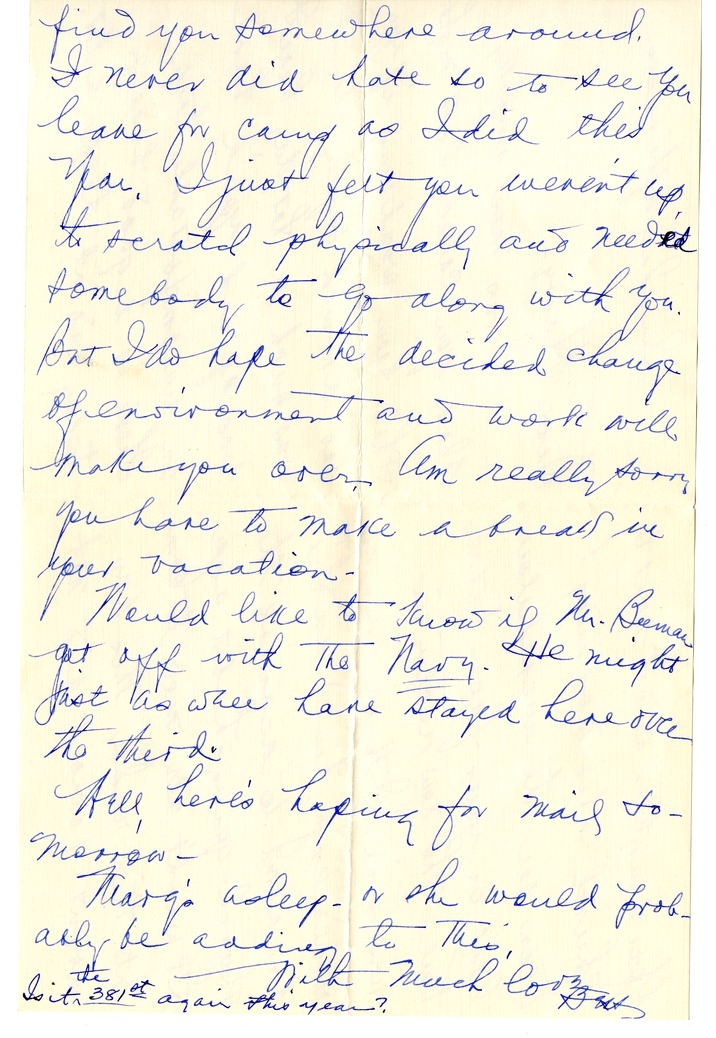 find you somewhere around.
I never did hate so to see you
leave for camp as I did this
Year. I just felt you weren't up
to scratch physically and needed
somebody to go along with you.
But I do hope the decided change
of environment and work will
make you over. Am really sorry
you have to make a break in
your vacation -
Would like to know if Mr. Beeman
got off with the Navy. He might
just as well have stayed here over
the third.
Well, here's hoping for mail to-
morrow -
Marg's asleep - or she would prob-
ably be adding to this.
With much love
Is it the 381st again this year?